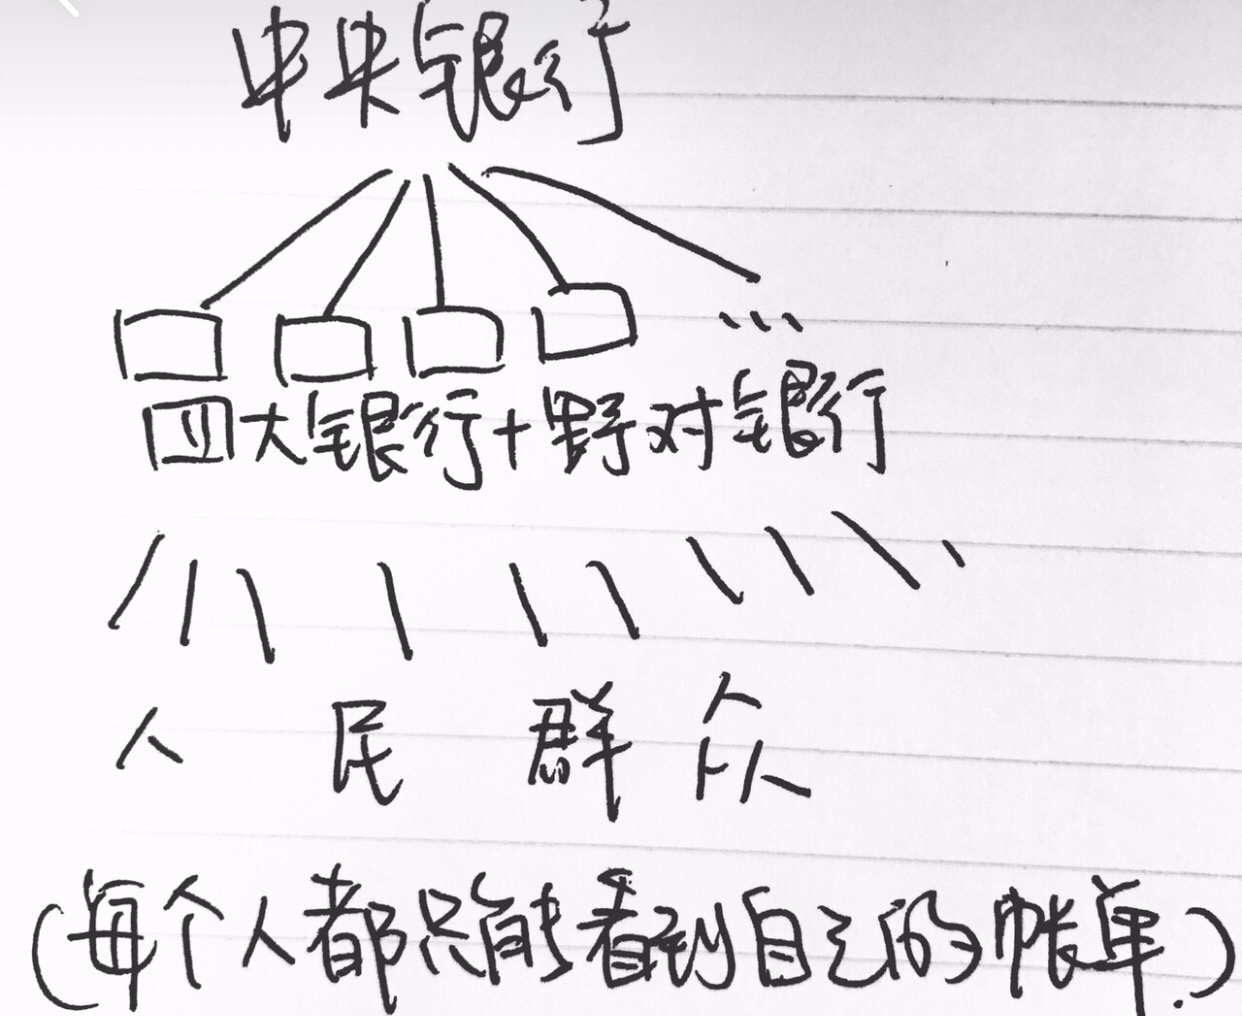 中央银行
...
四大银行+野对银行
人民群众
(每个人都只能看到自己的帐单.)